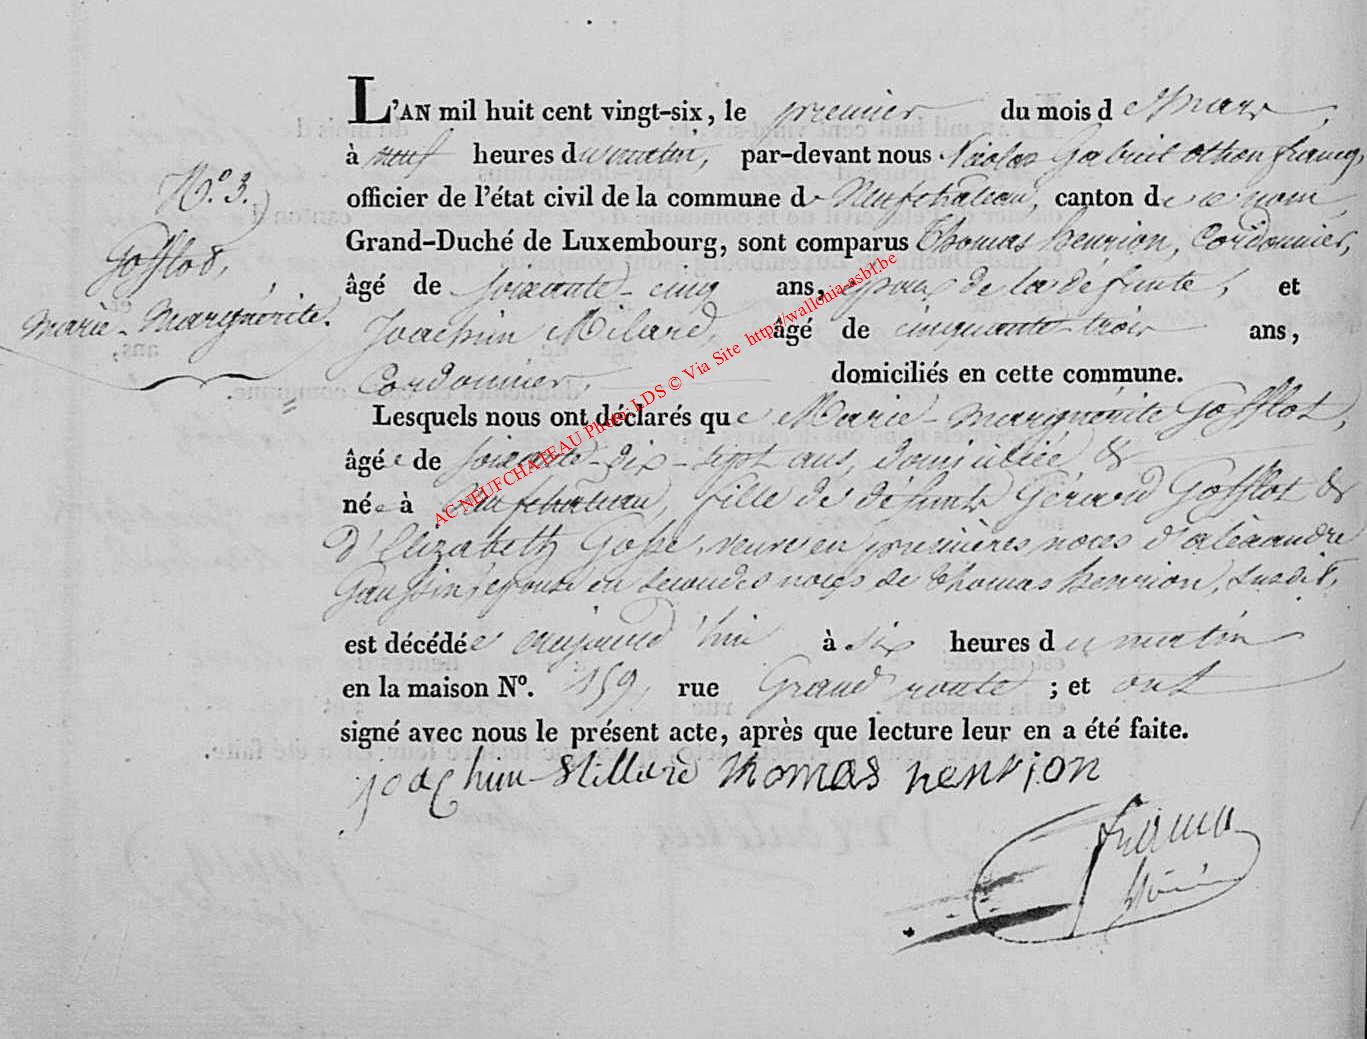 L'AN mil huit cent vingt-six, le premier du mois de mars,
à neuf heures du matin, par-devant nous Nicolas Gabriel othon francq,
N.º 3.
officier de l'état civil de la commune de Neufchateau, canton de ce nom
Grand-Duché de Luxembourg, sont comparus thomas henrion, Cordonnier,
Gofflot,
âgé de soixante-cinq ans, époux de la défunte, et
marie-marguérite.
Joachim Milard, âgé de cinquante-trois ans,
Cordonnier, domiciliés en cette commune.
Lesquels nous ont déclarés que Marie-marguérite Gofflot,
âgée de soixante-dix-sept ans, domiciliée &
née à Neufchateau, fille de défunts Gérard Gofflot &
d'Elizabeth Gosse, veuve en premières noces d'aléxandre
épouse en secondes noces de thomas henrion, susdit,
est décédée aujourd'hui à six heures du matin
en la maison Nº. 159, rue Grand route ; et ont
signé avec nous le présent acte, après que lecture leur en a été faite.
joachim Millard thomas henrion
AC NEUFCHATEAU Photo: LDS © Via Site http://wallonia-asbl.be